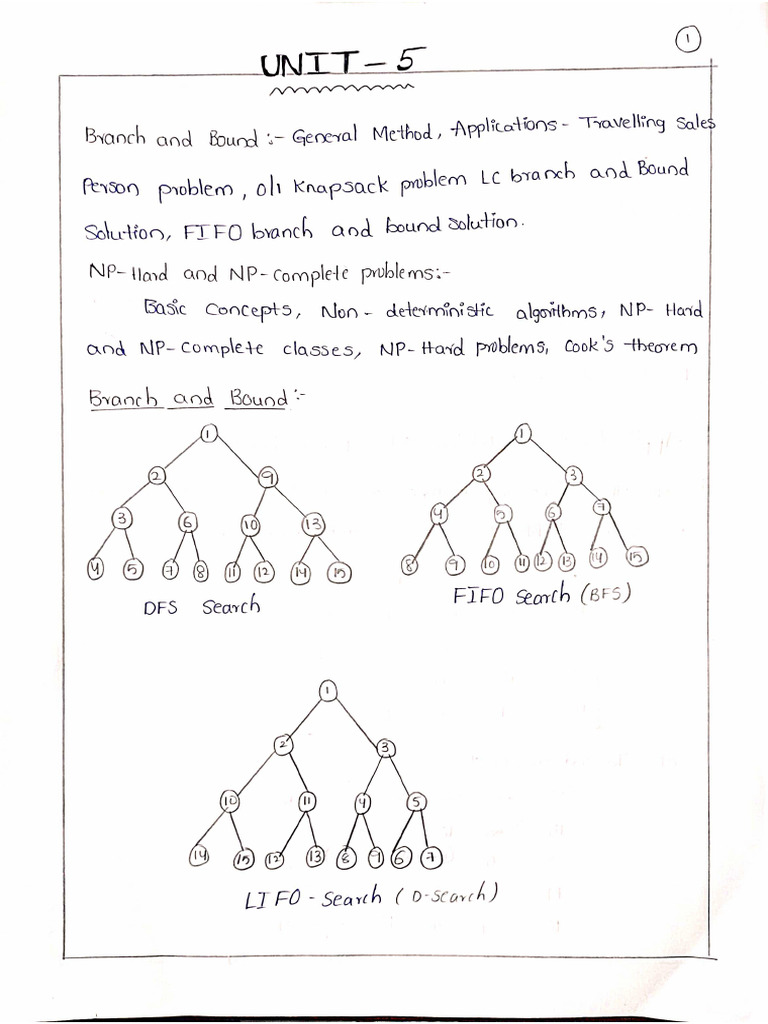 1
UNIT - 5
Branch and Bound :- General Method, Applications - Travelling Sales
Person problem, 0/1 Knapsack problem LC branch and Bound
Solution, FIFO branch and bound solution.
NP-Hard and NP-complete problems:-
Basic Concepts, Non-deterministic algorithms, NP-Hard
and NP-Complete classes, NP-Hard problems, Cook's theorem
Branch and Bound :-
1
2 9
3 6 10 13
4 5 7 8 11 12 14 15
DFS Search
1
2 3
4 5 6 7
8 9 10 11 12 13 14 15
FIFO Search (BFS)
1
2 3
10 11 4 5
14 15 12 13 8 9 6 7
LIFO - Search (D-Search)